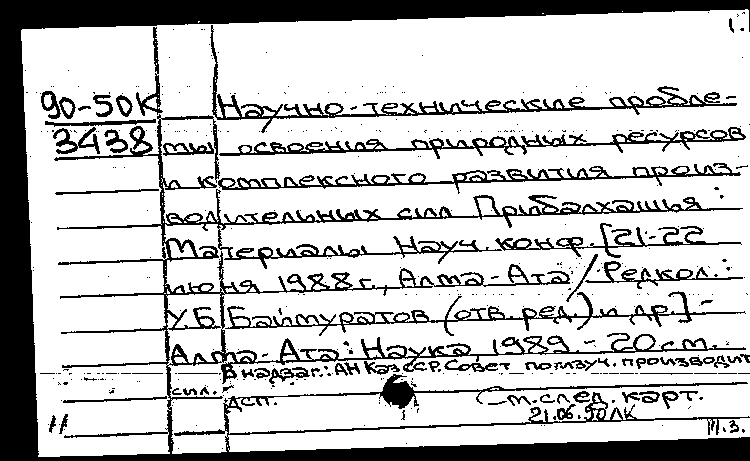 1.
90-50К Научно-технические пробле-
3438 мы освоения природных ресурсов
и комплексного развития произ-
водительных сил Прибалхашья :
Материалы Науч. конф. [21-22
июня 1988 г., Алма-Ата / Редкол.:
У.Б. Баймуратов (отв. ред.) и др.] -
Алма-Ата : Наука, 1989 - 20 см.
В надзаг.: АН КазССР. Совет по изуч. производит
сил.
ДСП. См. след. карт.
11 21.06.90 ЛК
Т.З.